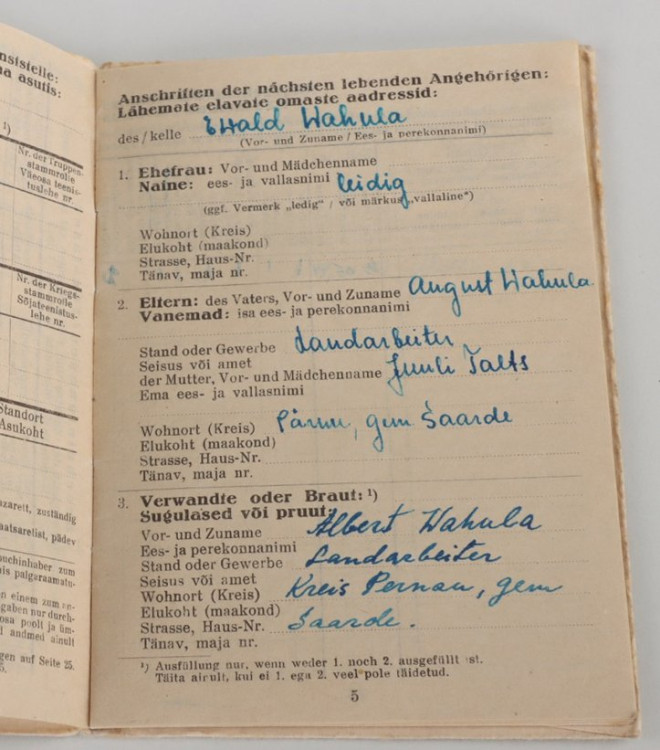 nststelle:
na asutis:
¹)
Nr. der Truppen-
stammrolle
Väeosa teenis-
tuslehe nr.
Nr. der Kriegs-
stammrolle
Sõjateenistus-
lehe nr.
Standort
Asukoht
azarett, zuständig
aatsarelist, pädev
uchinhaber zum
is palgaraamatu-
n einem zum
gaben nur durch-
osa poolt ja üm-
l andmed ainult
gen auf Seite 25.
5.
Anschriften der nächsten lebenden Angehörigen:
Lähemote elavate omaste aadressid:
des / kelle Ewald Wahula
(Vor- und Zuname / Ees- ja perekonnanimi)
1. Ehefrau: Vor- und Mädchenname
Naine: ees- ja vallasnimi leidig
(ggf. Vermerk „ledig" / või märkus „vallaline")
Wohnort (Kreis)
Elukoht (maakond)
Strasse, Haus-Nr.
Tänav, maja nr.
2. Eltern: des Vaters, Vor- und Zuname August Wahula
Vanemad: isa ees- ja perekonnanimi
Stand oder Gewerbe Landarbeiter
Seisus või amet
der Mutter, Vor- und Mädchenname Juuli Talts
Ema ees- ja vallasnimi
Wohnort (Kreis) Pärnu, gem Saarde
Elukoht (maakond)
Strasse, Haus-Nr.
Tänav, maja nr.
3. Verwandte oder Braut: ¹)
Sugulased või pruut:
Vor- und Zuname Albert Wahula
Ees- ja perekonnanimi
Stand oder Gewerbe Landarbeiter
Seisus või amet
Wohnort (Kreis) Kreis Pernau, gem
Elukoht (maakond)
Strasse, Haus-Nr. Saarde.
Tänav, maja nr.
¹) Ausfüllung nur, wenn weder 1. noch 2. ausgefüllt ist.
Täita ainult, kui ei 1. ega 2. veel pole täidetud.
5